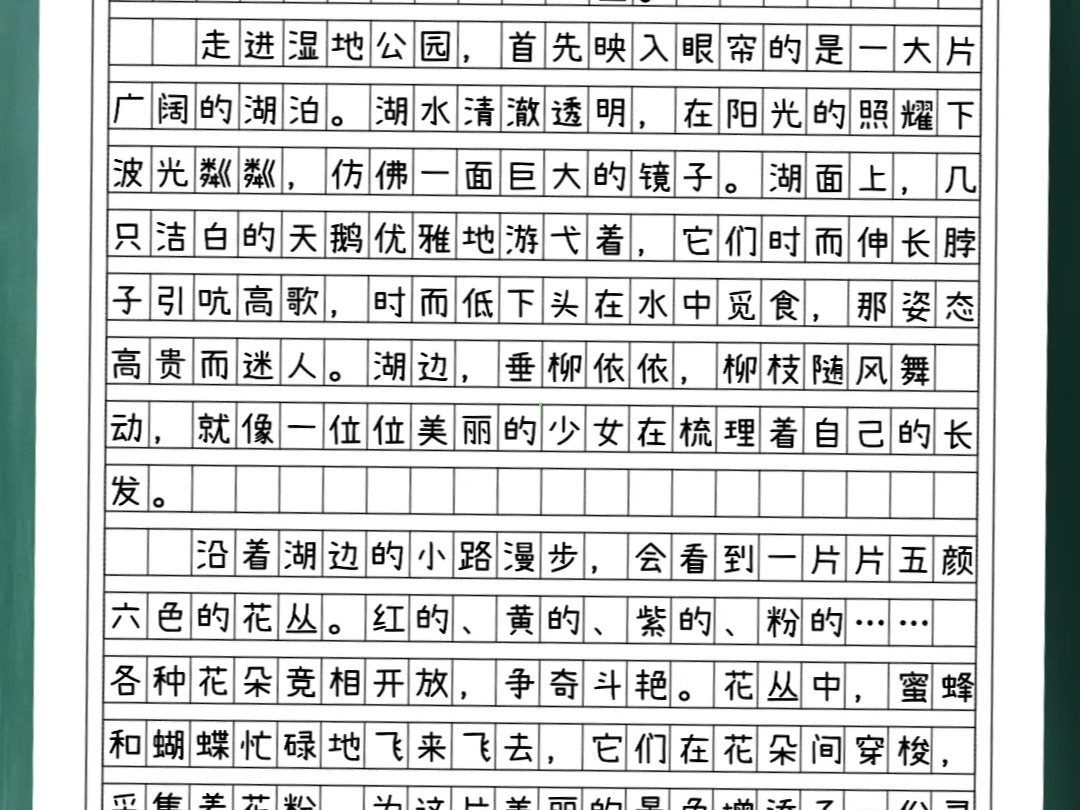 走进湿地公园，首先映入眼帘的是一大片
广阔的湖泊。湖水清澈透明，在阳光的照耀下
波光粼粼，仿佛一面巨大的镜子。湖面上，几
只洁白的天鹅优雅地游弋着，它们时而伸长脖
子引吭高歌，时而低下头在水中觅食，那姿态
高贵而迷人。湖边，垂柳依依，柳枝随风舞
动，就像一位位美丽的少女在梳理着自己的长
发。
沿着湖边的小路漫步，会看到一片片五颜
六色的花丛。红的、黄的、紫的、粉的……
各种花朵竞相开放，争奇斗艳。花丛中，蜜蜂
和蝴蝶忙碌地飞来飞去，它们在花朵间穿梭，
采集着花粉，为这片美丽的景色增添了一份灵